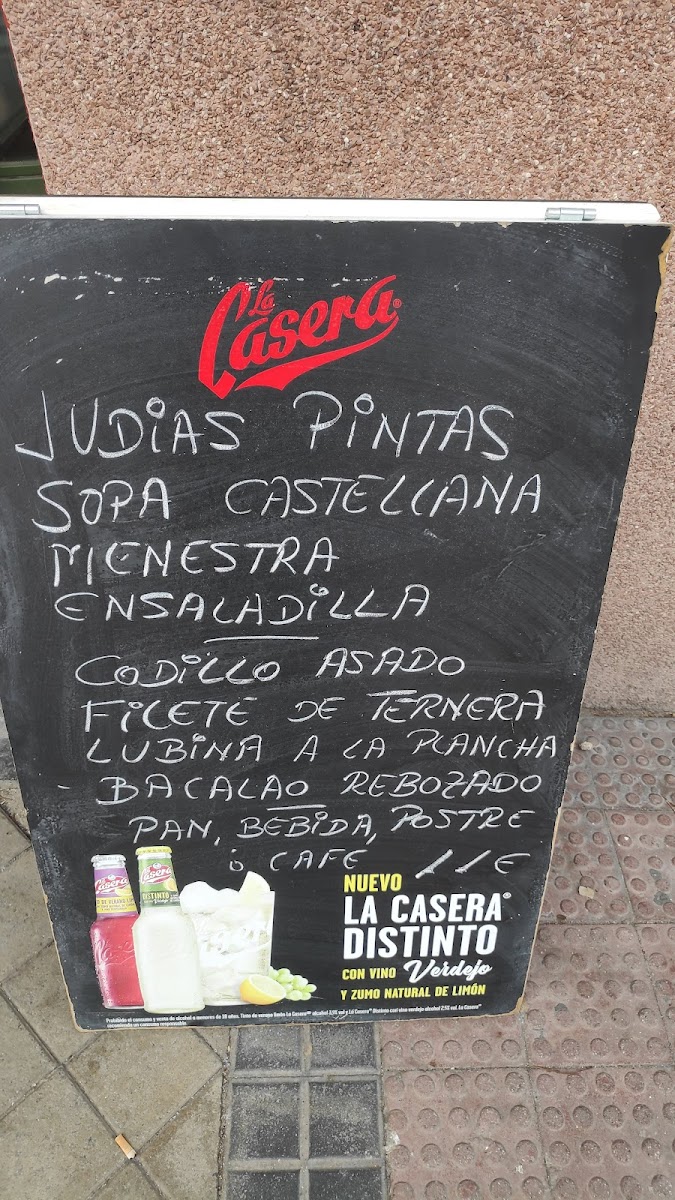 La Casera
JUDIAS PINTAS
SOPA CASTELLANA
MENESTRA
ENSALADILLA
CODILLO ASADO
FILETE DE TERNERA
LUBINA A LA PLANCHA
- BACALAO REBOZADO
PAN, BEBIDA, POSTRE
ò CAFE 11€
NUEVO
LA CASERA®
DISTINTO
CON VINO Verdejo
Y ZUMO NATURAL DE LIMÓN
La Casera
La Casera
DISTINTO